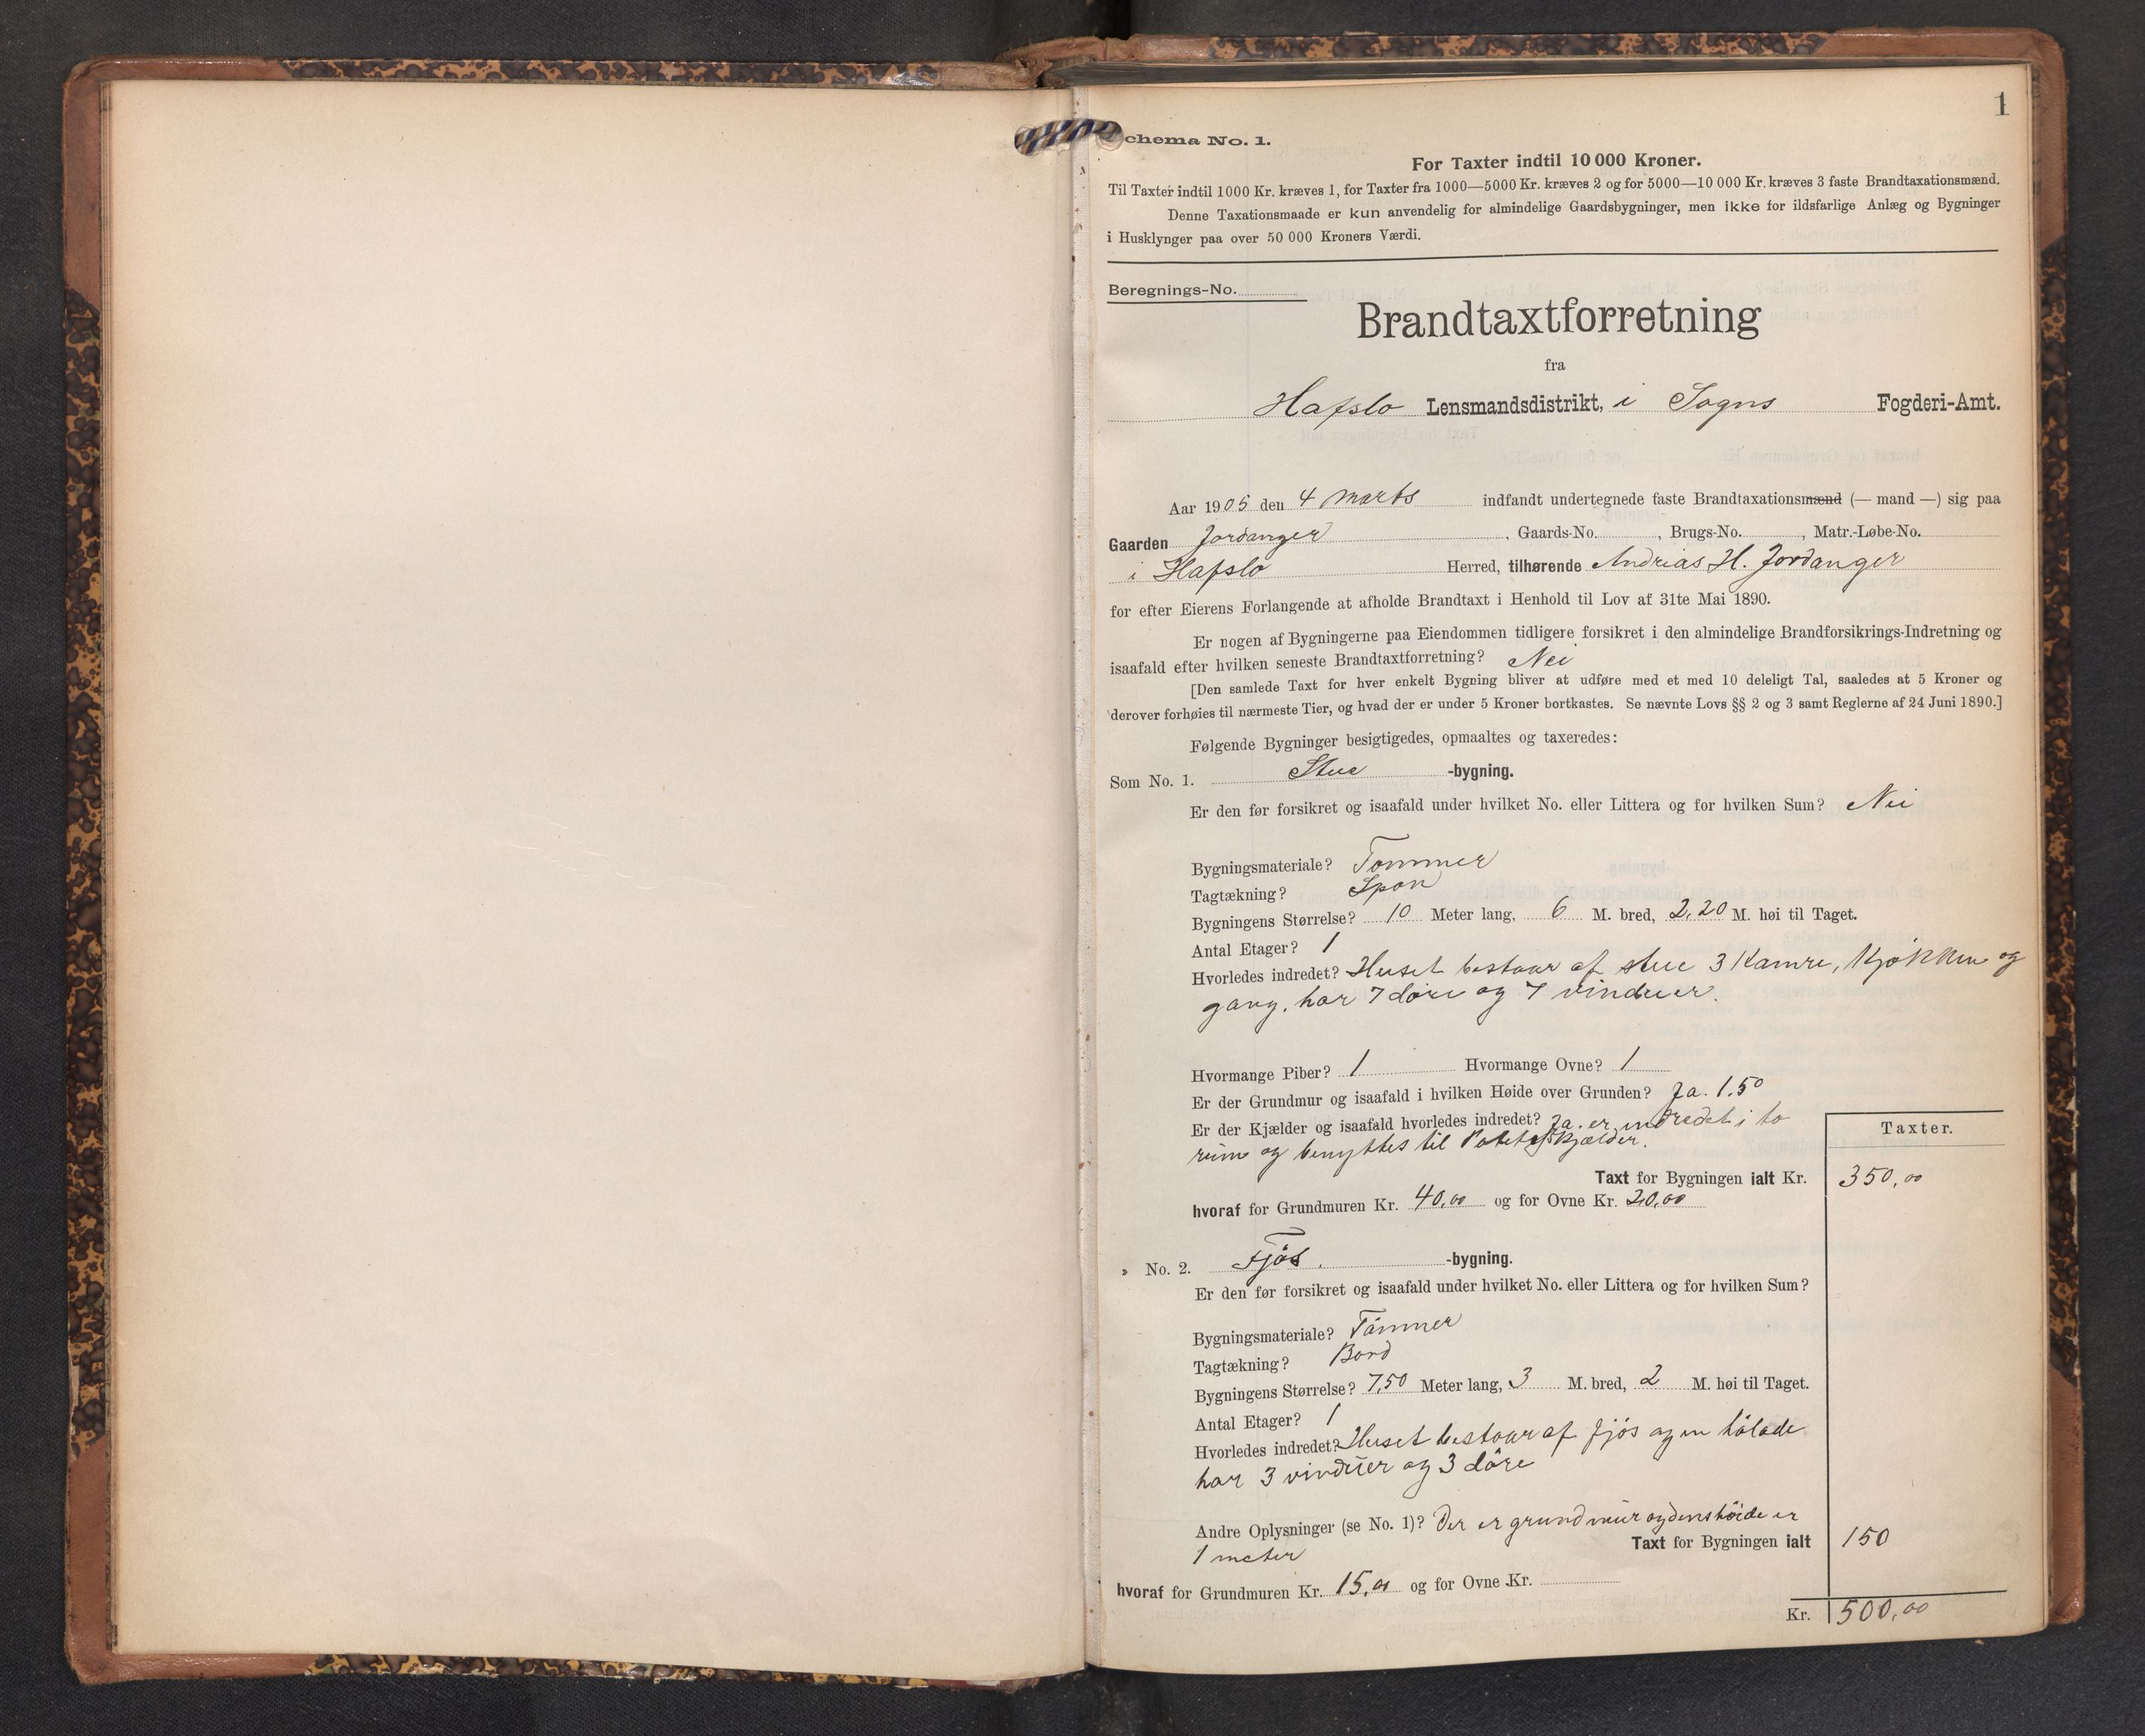 1
chema No. 1.
For Taxter indtil 10 000 Kroner.
Til Taxter indtil 1000 Kr. kræves 1, for Taxter fra 1000—5000 Kr. kræves 2 og for 5000—10 000 Kr. kræves 3 faste Brandtaxationsmænd.
Denne Taxationsmaade er kun anvendelig for almindelige Gaardsbygninger, men ikke for ildsfarlige Anlæg og Bygninger
i Husklynger paa over 50 000 Kroners Værdi.
Beregnings-No.
Brandtaxtforretning
fra
Hafslo Lensmandsdistrikt, i Sogns Fogderi-Amt.
Aar 1905 den 4 marts indfandt undertegnede faste Brandtaxationsmænd (— mand —) sig paa
Gaarden Jordanger, Gaards-No. , Brugs-No. , Matr.-Løbe-No.
i Hafslo Herred, tilhørende Andrias H. Jordanger
for efter Eierens Forlangende at afholde Brandtaxt i Henhold til Lov af 31te Mai 1890.
Er nogen af Bygningerne paa Eiendommen tidligere forsikret i den almindelige Brandforsikrings-Indretning og
isaafald efter hvilken seneste Brandtaxtforretning? Nei
[Den samlede Taxt for hver enkelt Bygning bliver at udføre med et med 10 deleligt Tal, saaledes at 5 Kroner og
derover forhøies til nærmeste Tier, og hvad der er under 5 Kroner bortkastes. Se nævnte Lovs §§ 2 og 3 samt Reglerne af 24 Juni 1890.]
Følgende Bygninger besigtigedes, opmaaltes og taxeredes:
Som No. 1. Stue -bygning.
Er den før forsikret og isaafald under hvilket No. eller Littera og for hvilken Sum? Nei
Bygningsmateriale? Tømmer
Tagtækning? Spon
Bygningens Størrelse? 10 Meter lang, 6 M. bred, 2,20 M. høi til Taget.
Antal Etager? 1
Hvorledes indredet? Huset bestaar af stue 3 Kamre, Kjøkken og
gang, har 7 døre og 7 vinduer.
Hvormange Piber? 1 Hvormange Ovne? 1
Er der Grundmur og isaafald i hvilken Høide over Grunden? Ja. 1,50
Er der Kjælder og isaafald hvorledes indredet? Ja. er indredet i to
rum og benyttes til Potetkjælder.
Taxter.
Taxt for Bygningen ialt Kr. 350,00
hvoraf for Grundmuren Kr. 40,00 og for Ovne Kr. 20,00
" No. 2. Fjös. -bygning.
Er den før forsikret og isaafald under hvilket No. eller Littera og for hvilken Sum?
Bygningsmateriale? Tömmer
Tagtækning? Bord
Bygningens Størrelse? 7,50 Meter lang, 3 M. bred, 2 M. høi til Taget.
Antal Etager? 1
Hvorledes indredet? Huset bestaar af fjös og en hölade
har 3 vinduer og 3 döre
Andre Oplysninger (se No. 1)? Der er grundmur og dens höide er
1 meter Taxt for Bygningen ialt 150
hvoraf for Grundmuren Kr. 15,00 og for Ovne Kr.
Kr. 500,00